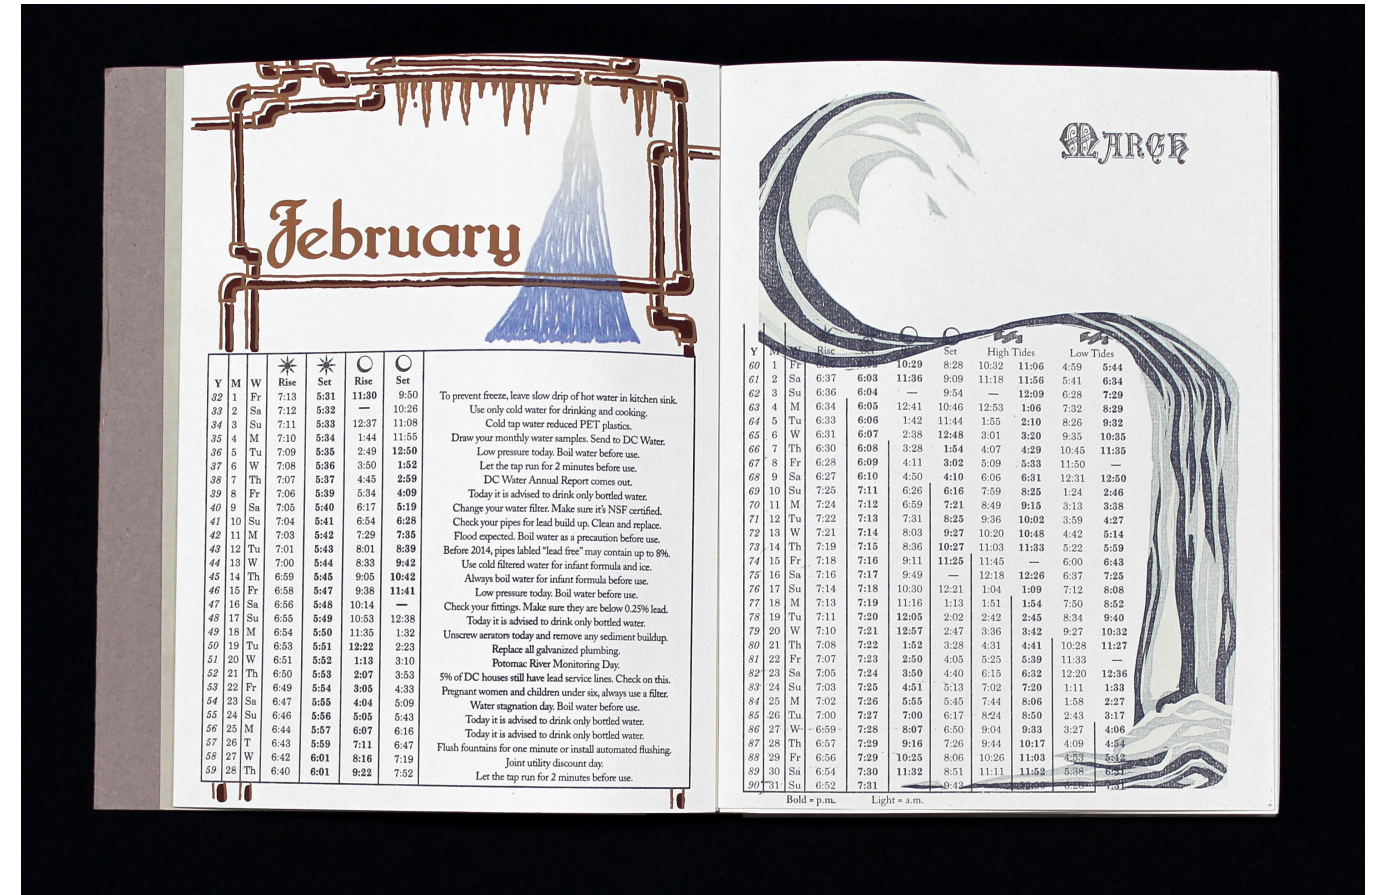 February
Rise Set Rise Set
Y M W
32 1 Fr 7:13 5:31 11:30 9:50 To prevent freeze, leave slow drip of hot water in kitchen sink.
33 2 Sa 7:12 5:32 — 10:26 Use only cold water for drinking and cooking.
34 3 Su 7:11 5:33 12:37 11:08 Cold tap water reduced PET plastics.
35 4 M 7:10 5:34 1:44 11:55 Draw your monthly water samples. Send to DC Water.
36 5 Tu 7:09 5:35 2:49 12:50 Low pressure today. Boil water before use.
37 6 W 7:08 5:36 3:50 1:52 Let the tap run for 2 minutes before use.
38 7 Th 7:07 5:37 4:45 2:59 DC Water Annual Report comes out.
39 8 Fr 7:06 5:39 5:34 4:09 Today it is advised to drink only bottled water.
40 9 Sa 7:05 5:40 6:17 5:19 Change your water filter. Make sure it's NSF certified.
41 10 Su 7:04 5:41 6:54 6:28 Check your pipes for lead build up. Clean and replace.
42 11 M 7:03 5:42 7:29 7:35 Flood expected. Boil water as a precaution before use.
43 12 Tu 7:01 5:43 8:01 8:39 Before 2014, pipes labled "lead free" may contain up to 8%.
44 13 W 7:00 5:44 8:33 9:42 Use cold filtered water for infant formula and ice.
45 14 Th 6:59 5:45 9:05 10:42 Always boil water for infant formula before use.
46 15 Fr 6:58 5:47 9:38 11:41 Low pressure today. Boil water before use.
47 16 Sa 6:56 5:48 10:14 — Check your fittings. Make sure they are below 0.25% lead.
48 17 Su 6:55 5:49 10:53 12:38 Today it is advised to drink only bottled water.
49 18 M 6:54 5:50 11:35 1:32 Unscrew aerators today and remove any sediment buildup.
50 19 Tu 6:53 5:51 12:22 2:23 Replace all galvanized plumbing.
51 20 W 6:51 5:52 1:13 3:10 Potomac River Monitoring Day.
52 21 Th 6:50 5:53 2:07 3:53 5% of DC houses still have lead service lines. Check on this.
53 22 Fr 6:49 5:54 3:05 4:33 Pregnant women and children under six, always use a filter.
54 23 Sa 6:47 5:55 4:04 5:09 Water stagnation day. Boil water before use.
55 24 Su 6:46 5:56 5:05 5:43 Today it is advised to drink only bottled water.
56 25 M 6:44 5:57 6:07 6:16 Today it is advised to drink only bottled water.
57 26 T 6:43 5:59 7:11 6:47 Flush fountains for one minute or install automated flushing.
58 27 W 6:42 6:01 8:16 7:19 Joint utility discount day.
59 28 Th 6:40 6:01 9:22 7:52 Let the tap run for 2 minutes before use.
March
Y M W Rise Set High Tides Low Tides
60 1 Fr 10:29 8:28 10:32 11:06 4:59 5:44
61 2 Sa 6:37 6:03 11:36 9:09 11:18 11:56 5:41 6:34
62 3 Su 6:36 6:04 — 9:54 — 12:09 6:28 7:29
63 4 M 6:34 6:05 12:41 10:46 12:53 1:06 7:32 8:29
64 5 Tu 6:33 6:06 1:42 11:44 1:55 2:10 8:26 9:32
65 6 W 6:31 6:07 2:38 12:48 3:01 3:20 9:35 10:35
66 7 Th 6:30 6:08 3:28 1:54 4:07 4:29 10:45 11:35
67 8 Fr 6:28 6:09 4:11 3:02 5:09 5:33 11:50 —
68 9 Sa 6:27 6:10 4:50 4:10 6:06 6:31 12:31 12:50
69 10 Su 7:25 7:11 6:26 6:16 7:59 8:25 1:24 2:46
70 11 M 7:24 7:12 6:59 7:21 8:49 9:15 3:13 3:38
71 12 Tu 7:22 7:13 7:31 8:25 9:36 10:02 3:59 4:27
72 13 W 7:21 7:14 8:03 9:27 10:20 10:48 4:42 5:14
73 14 Th 7:19 7:15 8:36 10:27 11:03 11:33 5:22 5:59
74 15 Fr 7:18 7:16 9:11 11:25 11:45 — 6:00 6:43
75 16 Sa 7:16 7:17 9:49 — 12:18 12:26 6:37 7:25
76 17 Su 7:14 7:18 10:30 12:21 1:04 1:09 7:12 8:08
77 18 M 7:13 7:19 11:16 1:13 1:51 1:54 7:50 8:52
78 19 Tu 7:11 7:20 12:05 2:02 2:42 2:45 8:34 9:40
79 20 W 7:10 7:21 12:57 2:47 3:36 3:42 9:27 10:32
80 21 Th 7:08 7:22 1:52 3:28 4:31 4:41 10:28 11:27
81 22 Fr 7:07 7:23 2:50 4:05 5:25 5:39 11:33 —
82 23 Sa 7:05 7:24 3:50 4:40 6:15 6:32 12:20 12:36
83 24 Su 7:03 7:25 4:51 5:13 7:02 7:20 1:11 1:33
84 25 M 7:02 7:26 5:55 5:45 7:44 8:06 1:58 2:27
85 26 Tu 7:00 7:27 7:00 6:17 8:24 8:50 2:43 3:17
86 27 W 6:59 7:28 8:07 6:50 9:04 9:33 3:27 4:06
87 28 Th 6:57 7:29 9:16 7:26 9:44 10:17 4:09 4:54
88 29 Fr 6:56 7:29 10:25 8:06 10:26 11:03 4:53 5:42
89 30 Sa 6:54 7:30 11:32 8:51 11:11 11:52 5:38 6:31
90 31 Su 6:52 7:31 9:42
Bold = p.m. Light = a.m.